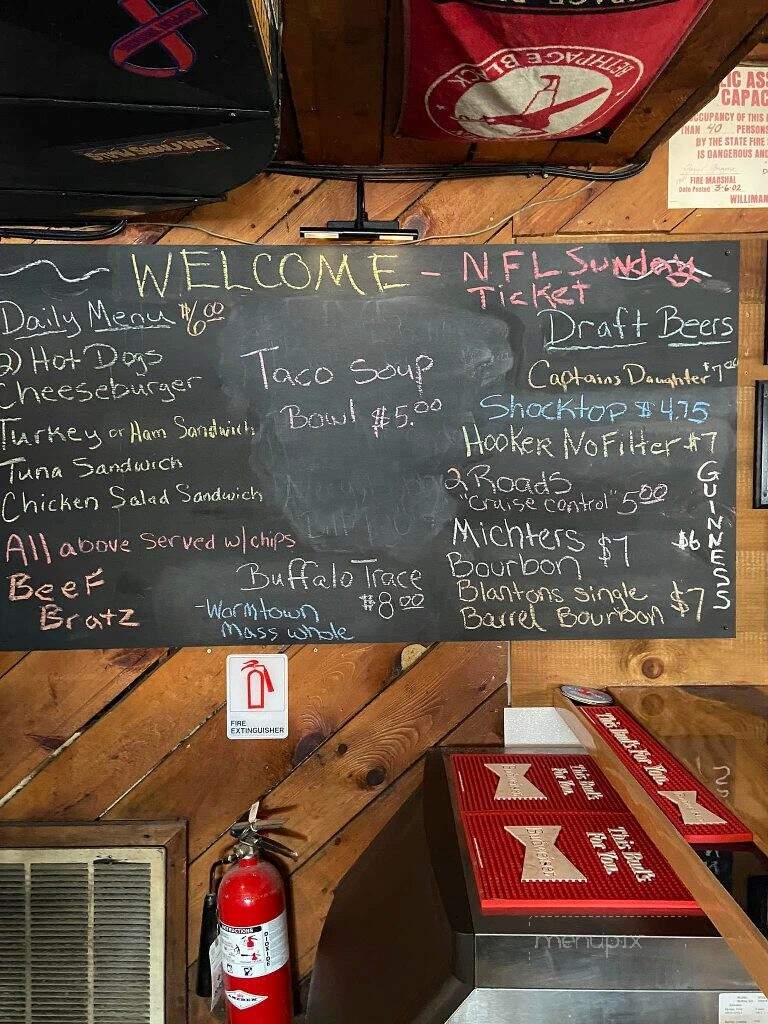 BETHPAGE BLACK
LIC ASS
CAPAC
OCCUPANCY OF THIS
THAN 40 PERSONS
BY THE STATE FIRE
IS DANGEROUS AND
FIRE MARSHAL
Date Posted 3-6-02
WILLIMAN
WELCOME - NFL Sunday
Ticket
Daily Menu $6.00
2) Hot Dogs
Cheeseburger
Turkey or Ham Sandwich
Tuna Sandwich
Chicken Salad Sandwich
All above Served w/chips
Beef
Bratz
Taco Soup
Bowl $5.00
Buffalo Trace
$8.00
-Wormtown
Mass whole
Draft Beers
Captains Daughter $7.00
Shocktop $4.75
Hooker No Filter $7
2 Roads
"Cruise control" 5.00
Michters
Bourbon $7
Blantons single
Barrel Bourbon $7
GUINNESS
$6
FIRE
EXTINGUISHER
This Bud's For You.
Budweiser
This Bud's
For You.
Budweiser
This Bud's
For You.
Budweiser
INSTRUCTIONS
DIOXIDE
AMEREX
menupix